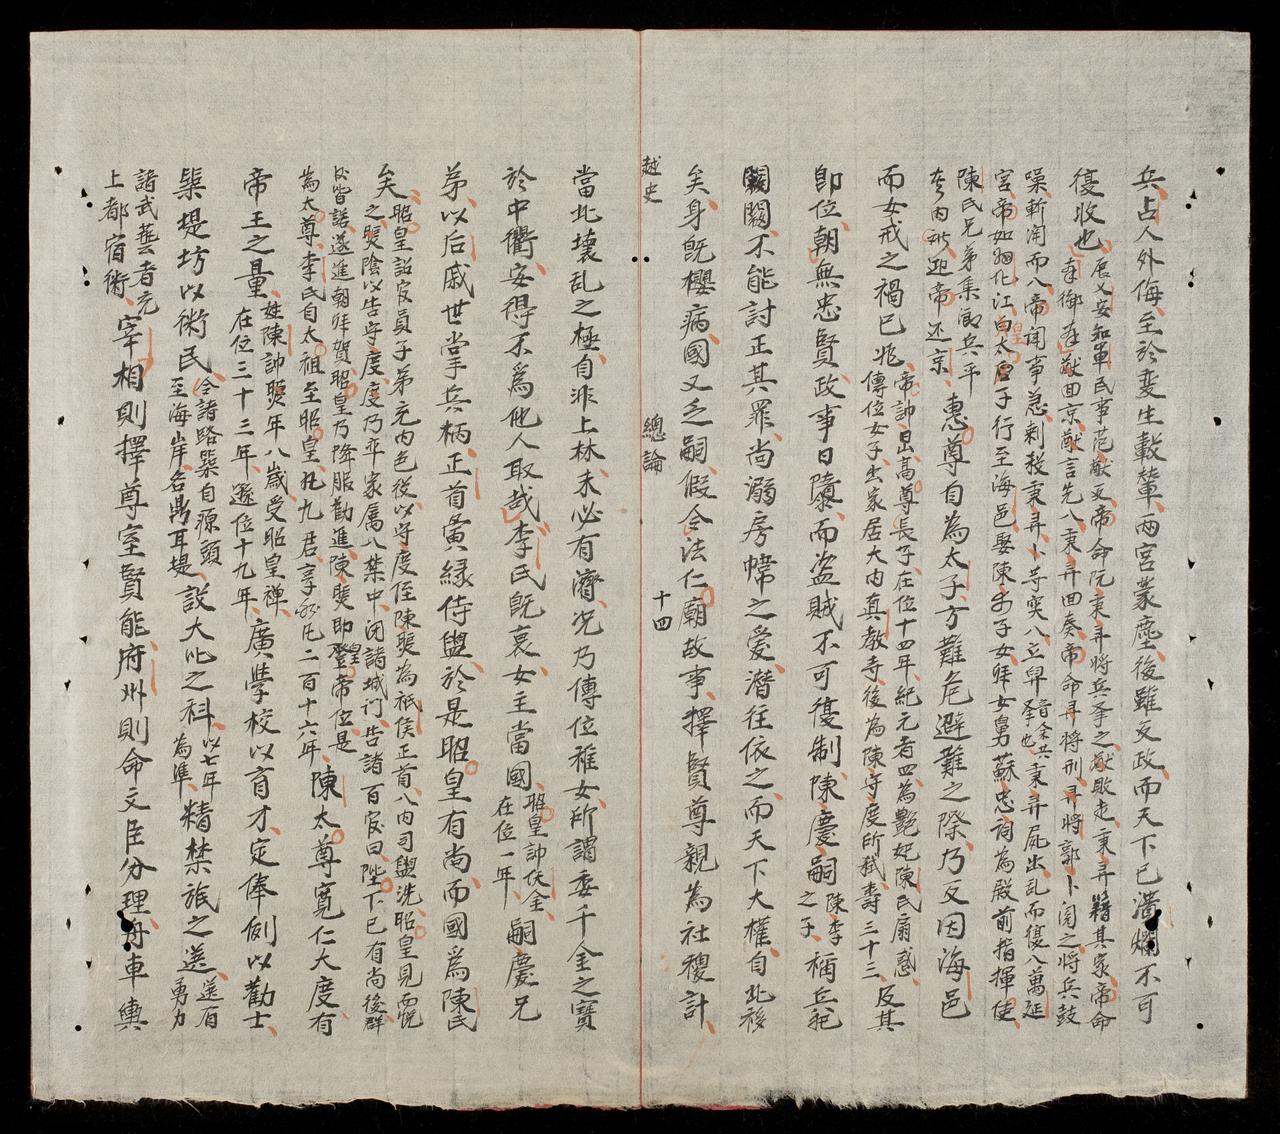 兵占人外侮至於変生轂輦両宮蒙塵後雖文政而天下已潰爛不可
復收也
唇乂安知軍民事范猷文帝命阮秉彛将兵爭之猷敗走秉彛籍其家帝命
奉御奉猷回京猷言先入秉彛回奏帝命彛将刑彛将郭卜闻之将兵鼓
噪斬関而入帝闻事急刺殺秉彛卜等突入立皐秉彛屍出乱而復入萬延
宮帝如歸化江皇太子行至海邑娶陳李子女拜女舅蘇忠詞為殿前指揮使
陳氏兄弟集鄉兵平
內訌迎帝还京
惠尊自為太子方難危避難之際乃又因海邑
而女戒之禍已兆
帝諱旵高尊長子在位十四年紀元者四為艶妃陳氏扇惑
傳位女子出家居大內真教寺後為陳守度所弒壽三十三
及其
即位朝無忠賢政事日隳而盗賊不可復制陳慶嗣
陳李
之子
稱兵犯
闕不能討正其罪尚溺房幃之爱潛往依之而天下大權自此移
矣身既櫻病國又乏嗣假令法仁廟故事擇賢尊親為社稷計
越史
總論
十四
當此壞乱之極自非上林未必有濟况乃傳位稚女所謂委千金之寶
於中衢安得不為他人取哉李氏既衰女主當國
昭皇諱佛金
在位一年
嗣慶兄
弟以后戚世掌兵柄正首夤縁侍盥於是昭皇有尚而國為陳氏
矣
昭皇詔官員子弟充內色後以守度侄陳㷃為祗侯正首入內司盥洗昭皇見而悦
之㷃陰以告守度度乃率家属入禁中闭諸城门告諸百官曰陛下已有尚後群
臣皆諾遂進朝拜賀昭皇乃降服勸進陳㷃即皇帝位是
為太尊李氏自太祖至昭皇凡九君享國凡二百十六年
陳太尊寬仁大度有
帝王之量
姓陳諱㷃年八歳受昭皇禅
在位三十三年遜位十九年
廣學校以育才定俸例以勸士
築堤坊以衛民
令諸路築自源頭
至海岸名鼎耳堤
設大比之科
以七年
為準
精禁旅之選
選有
勇力
諸武藝者充
上都宿衛
宰相則擇尊室賢能府州則命文臣分理舟車輿